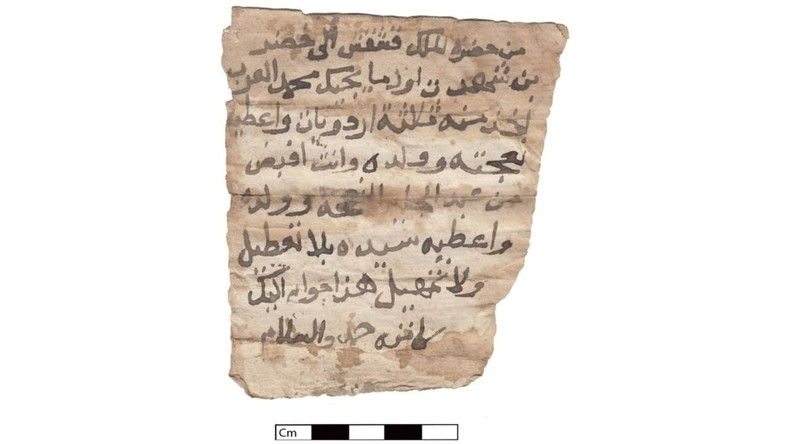 من حضرة الملك قشقش الى خضر
بن اول ما يجيك محمد العرب
منه ثلاثة اردويات واعطيه
نعجته وولده وانت اقبض
من عبد النعجة وولده
واعطيه سيده بلا تعطيل
ولا تمهيل هذا جوابه اليك
حمد والسلام
Cm